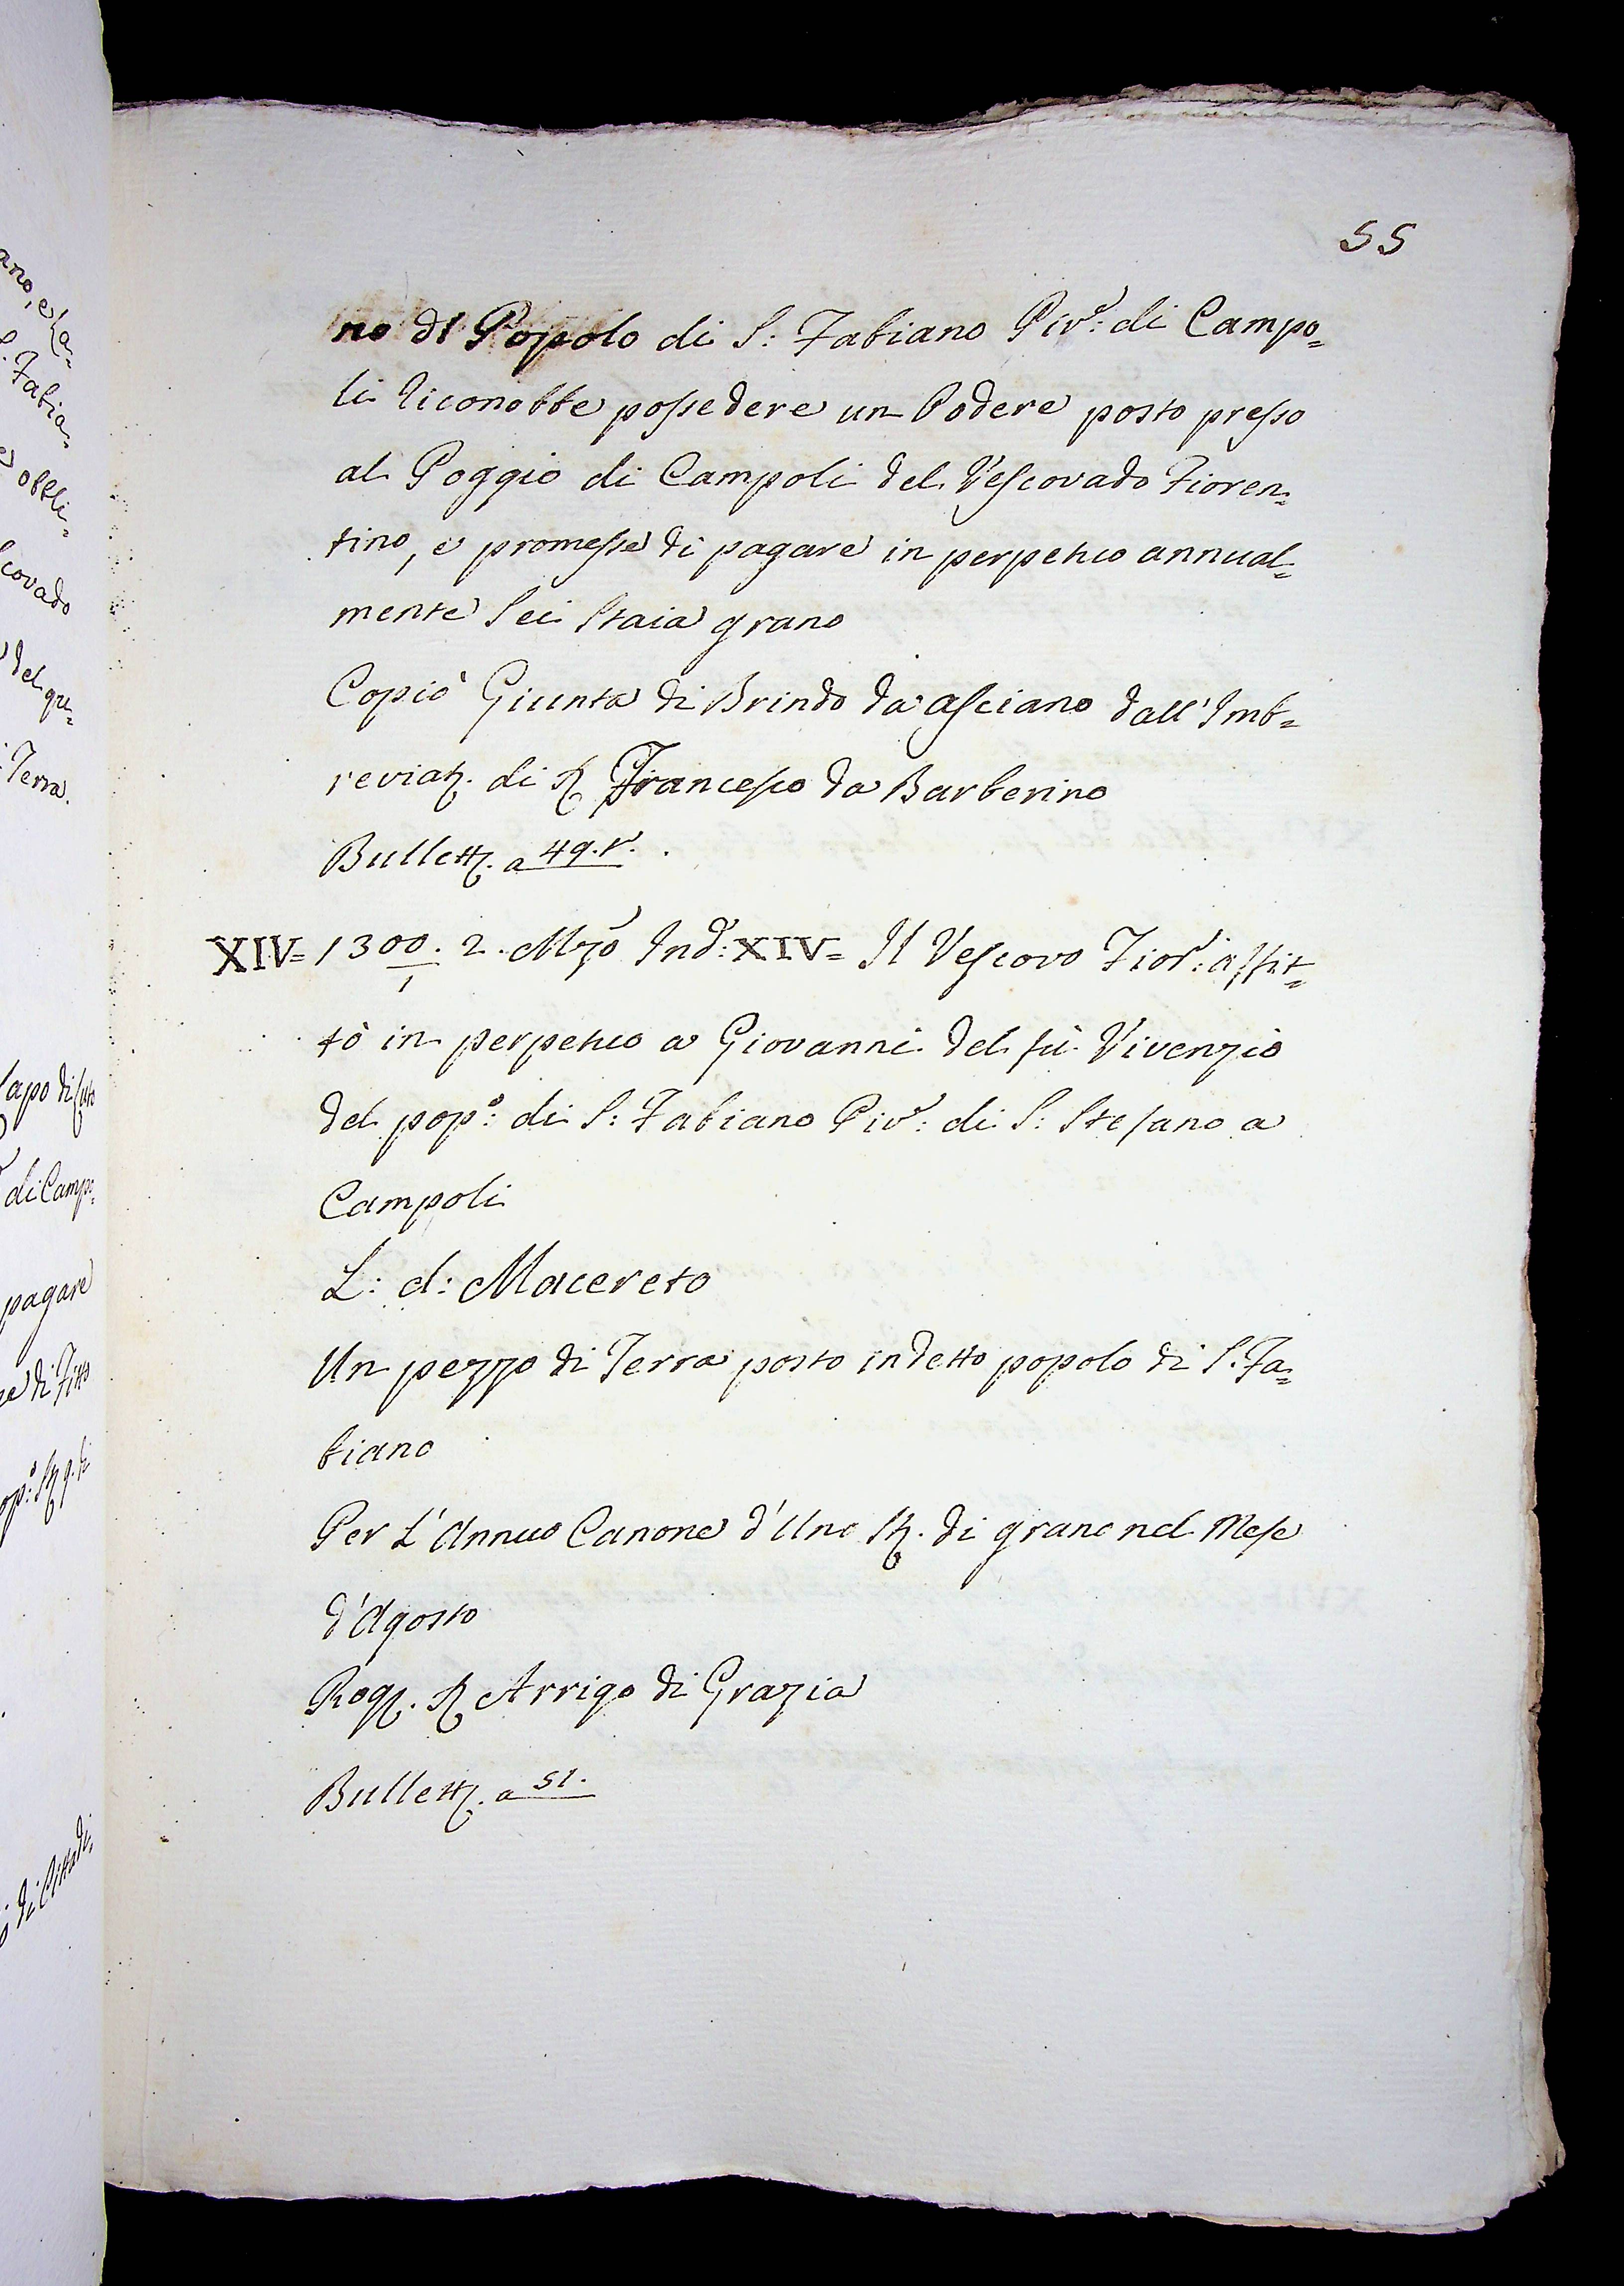 55
no dl Popolo di S: Fabiano Piv:e di Campo=
li riconobbe possedere un Podere posto presso
al Poggio di Campoli del Vescovado Fioren=
tino, e promesse di pagare in perpetuo annual=
mente Sei Staia grano
Copiò Giunta di Brindo da Asciano dall'Imb=
reviaz. di Francesco da Barberino
Bullett. a 49.r.
XIV= 1300/1. 2. Mzo Ind: XIV= Il Vescovo Fior: affit=
tò in perpetuo a Giovanni del fù Vivenzio
del pop:o di S: Fabiano Piv:e di S: Stefano a
Campoli
L: d: Macereto
Un pezzo di Terra posto in detto popolo di S: Fa=
biano
Per L'Annuo Canone d'Uno St. di grano nel Mese
d'Agosto
Rog. Arrigo di Grazia
Bullett. a 51.